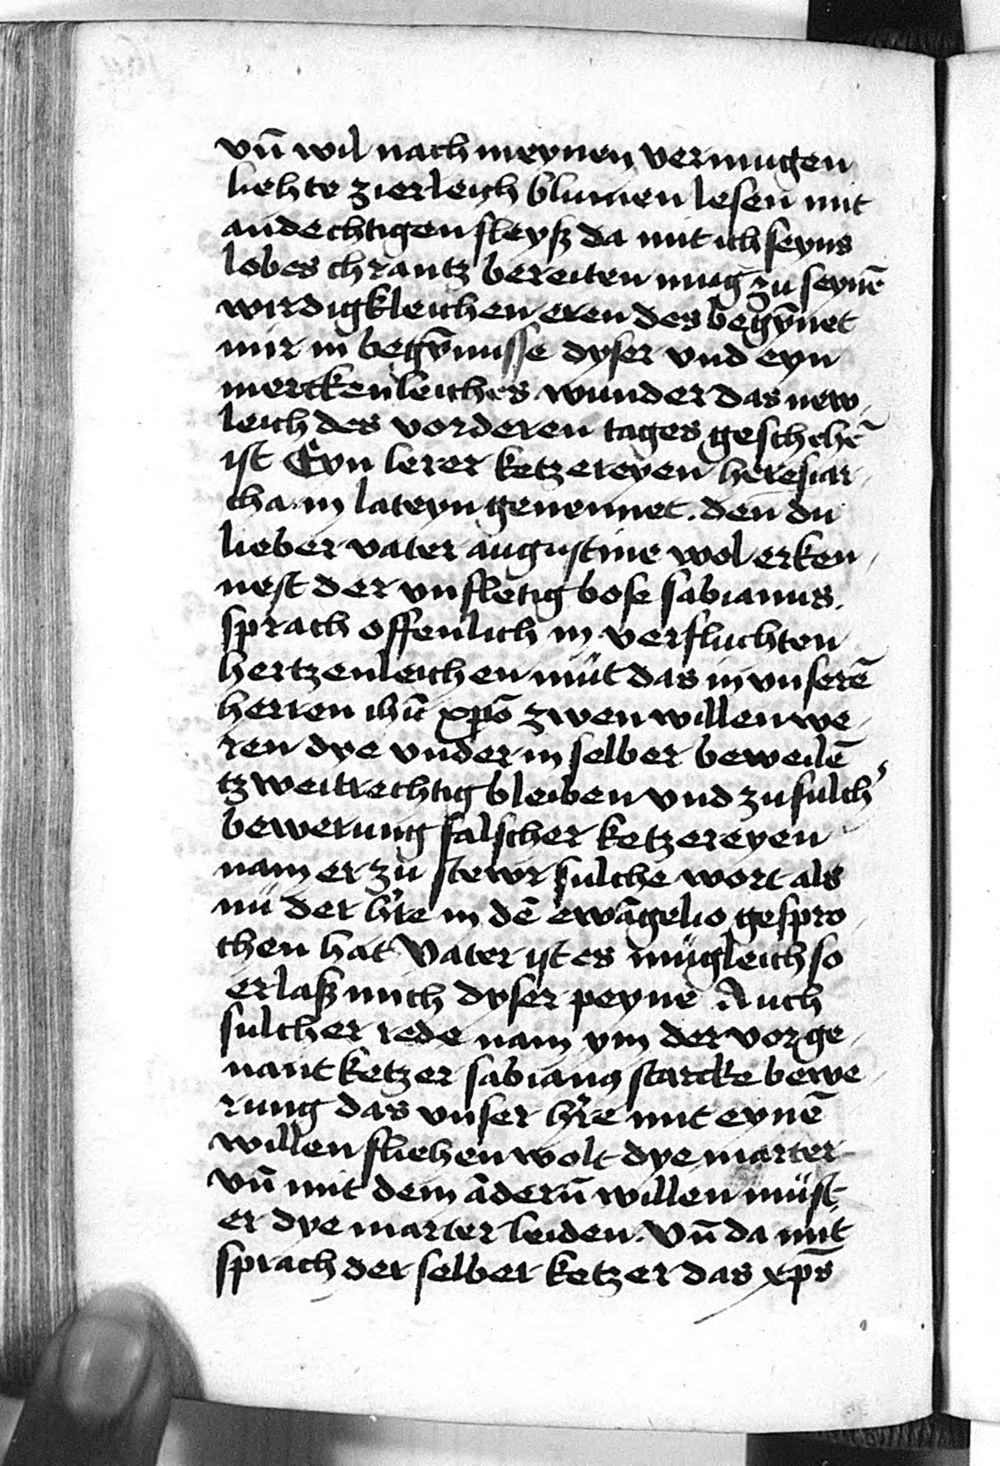 vn̄ wil nach meynen vermugen
liehte zierleich blumen lesen mit
andechtigen fleysz da mit ich seyns
lobes chrantz bereiten mug zu seynē
wirdigkleichen eren des begȳnet
mir in begȳnnusse dyser vnd eyn
merckenleiches wunder das new
leich des vorderen tages geschehē
ist Eyn lerer ketzereyen heresiar
cha in lateyn genennet. den du
lieber vater augustine wol erken
nest der vnfletig bose sabianus.
sprach offenlich in verfluchten
hertzenleichen müt das in vnserē
herren ihū xpō zwen willen we
ren dye vnder in selber beweilē
tzweitrechtig bleiben vnd zu sulch̕
bewerung falscher ketzereyen
nam er zü stewr sulche wort als
nü der h̕re in dē ewāgelio gespro
chen hat Vater ist es mügleich so
erlasz mich dyser peyne Auch
sulcher rede nam ym der vorge
nant ketzer sabianus starcke bewe
rung das vnser h̕re mit eynē
willen fliehen wolt dye marter
vn̄ mit dem āderū willen müst
er dye marter leiden. Vn̄ da mit
sprach der selber ketzer das xp̄s